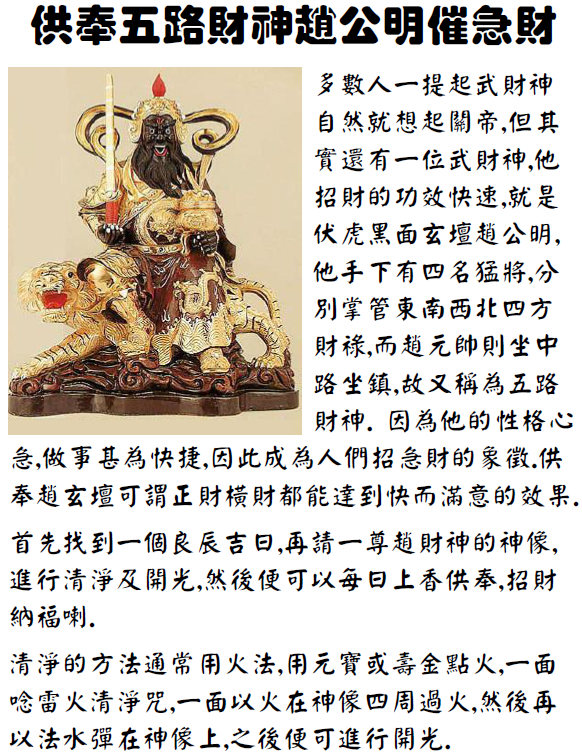 供奉五路財神趙公明催急財
多數人一提起武財神
自然就想起關帝,但其
實還有一位武財神,他
招財的功效快速,就是
伏虎黑面玄壇趙公明,
他手下有四名猛將,分
別掌管東南西北四方
財祿,而趙元帥則坐中
路坐鎮,故又稱為五路
財神. 因為他的性格心
急,做事甚為快捷,因此成為人們招急財的象徵.供
奉趙玄壇可謂正財橫財都能達到快而滿意的效果.
首先找到一個良辰吉日,再請一尊趙財神的神像,
進行清淨及開光,然後便可以每日上香供奉,招財
納福喇.
清淨的方法通常用火法,用元寶或壽金點火,一面
唸雷火清淨咒,一面以火在神像四周過火,然後再
以法水彈在神像上,之後便可進行開光.